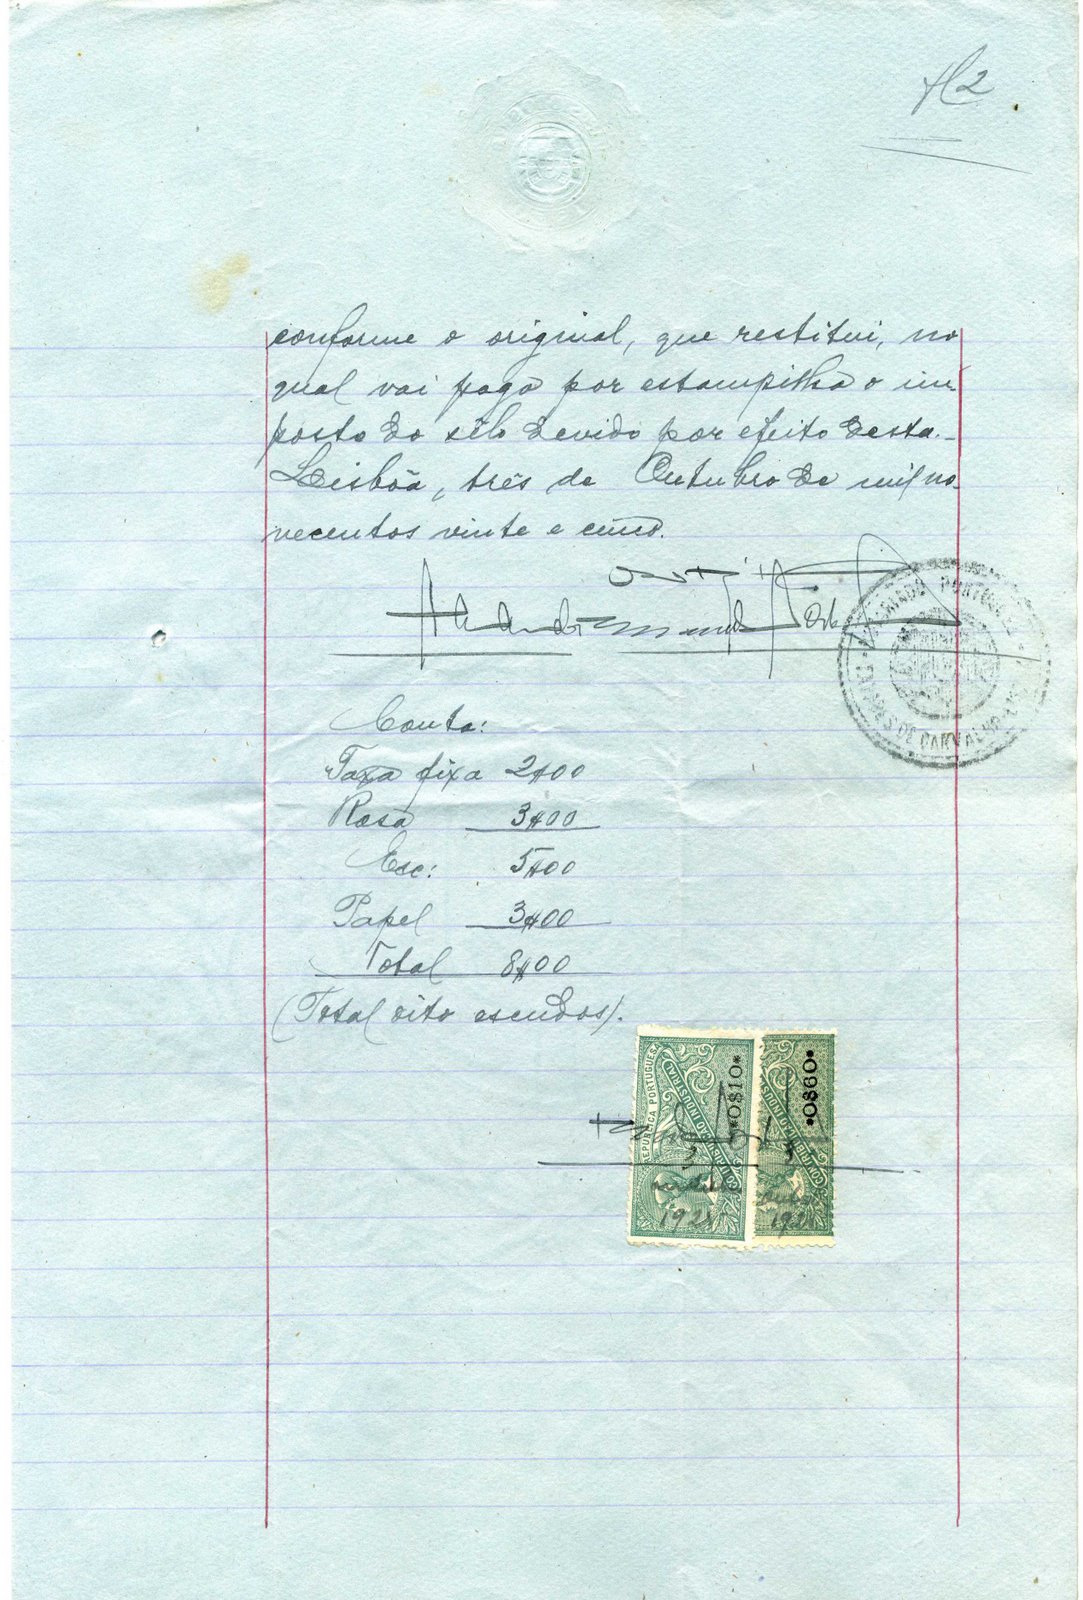 fl2
conforme o original, que restitui, no
qual vai pago por estampilha o im
posto do sêlo devido por efeito desta.-
Lisbôa, três de Outubro de mil no-
vecentos vinte e cinco.
TAVARES DE CARVALHO
NOTARIADO PORTUGUES
Conta:
Taxa fixa 2$00
Rasa 3$00
Esc: 5$00
Papel 3$00
Total 8$00
(Total oito escudos).
REPUBLICA PORTUGUESA
CONTRIBUIÇÃO INDUSTRIAL
*0$10*
CONTRIBUIÇÃO INDUSTRIAL
*0$60*
3
3
1925